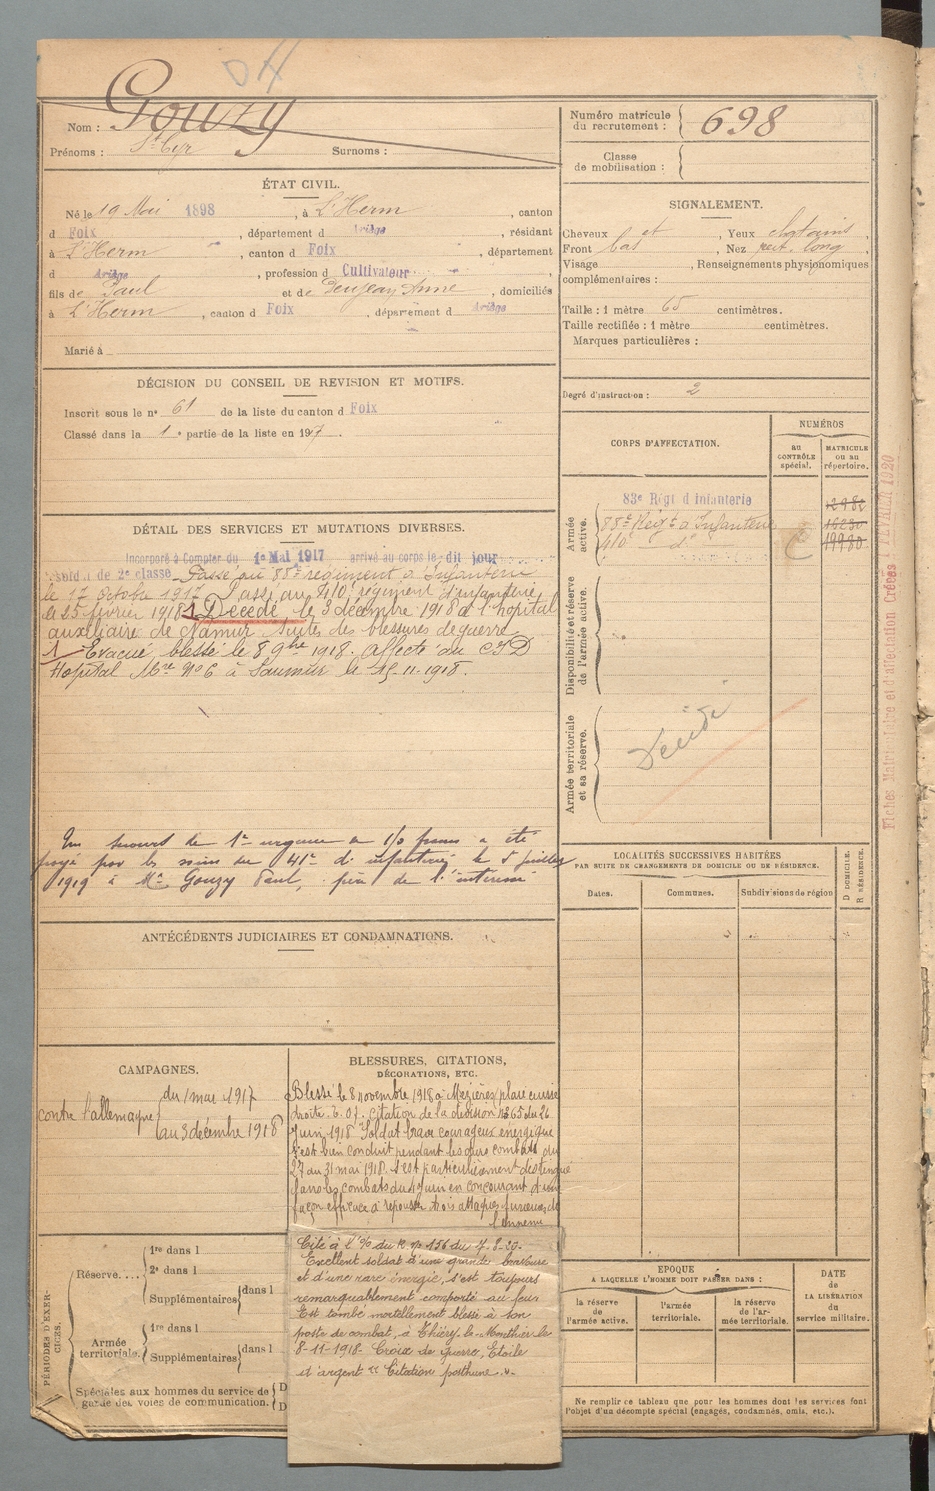 Nom : Gouzy
Prénoms : St Cyr Surnoms :
Numéro matricule du recrutement : 698
Classe de mobilisation :
ÉTAT CIVIL.
Né le 19 Mai 1898, à L'Herm, canton
d Foix, département d Ariège, résidant
à L'Herm, canton d Foix, département
d Ariège, profession d Cultivateur,
fils de Paul et de Anne, domiciliés
à L'Herm, canton d Foix, département d Ariège
Marié à
SIGNALEMENT.
Cheveux et, Yeux chatains,
Front bas, Nez long
Visage, Renseignements physionomiques
complémentaires :
Taille : 1 mètre 65 centimètres.
Taille rectifiée : 1 mètre centimètres.
Marques particulières :
Degré d'instruction : 2
DÉCISION DU CONSEIL DE REVISION ET MOTIFS.
Inscrit sous le n° 61 de la liste du canton d Foix
Classé dans la 1e partie de la liste en 1917.
CORPS D'AFFECTATION.
NUMÉROS
au CONTRÔLE spécial.
MATRICULE ou au répertoire.
Armée active.
83e Régt d'infanterie
88e Régt d'Infanterie 16230
410 d° 19980
Disponibilité et réserve de l'armée active.
Armée territoriale et sa réserve.
Décédé
Fiches Matriculaire et d'affectation Créées FÉVRIER 1920
DÉTAIL DES SERVICES ET MUTATIONS DIVERSES.
Incorporé à Compter du 1er Mai 1917 arrivé au corps le dit jour
soldat de 2e classe Passé au 88e régiment d'Infanterie
le 17 octobre 1917 Passé au 410 régiment d'infanterie
le 25 février 1918 1 Décédé le 3 décembre 1918 à l'hopital
auxiliaire de Namur suites des blessures de guerre
1 Evacué blessé le 8 9bre 1918. affecté au
Hopital N° 6 à Saumur le 15-11-1918.
Un secours de 1re urgence de francs a été
payé par les soins du 41e d'infanterie le 5 juillet
1919 à Mr Gouzy Paul, père de l'intéressé
LOCALITÉS SUCCESSIVES HABITÉES
PAR SUITE DE CHANGEMENTS DE DOMICILE OU DE RÉSIDENCE.
Dates.
Communes.
Subdivisions de région
D DOMICILE.
R RÉSIDENCE.
ANTÉCÉDENTS JUDICIAIRES ET CONDAMNATIONS.
CAMPAGNES.
contre l'allemagne
du 1 mai 1917
au 3 décembre 1918
BLESSURES, CITATIONS,
DÉCORATIONS, ETC.
Blessé le 8 novembre 1918 à Mezières plaie cuisse
droite. citation de la division N° 365 du 26
Juin 1918 Soldat brave courageux énergique
s'est bien conduit pendant les durs combats du
27 au 31 mai 1918. s'est particulièrement distingué
dans les combats du 4 juin en concourant d'une
façon efficace à repousser trois attaques furieuses de
l'ennemi
Cité à l'o/o du n° 156 du 7-8-20.
Excellent soldat d'une grande bravoure
et d'une rare énergie, s'est toujours
remarquablement comporté au feu
Est tombé mortellement blessé à son
poste de combat, à Thiéry-le-Monthier le
8-11-1918. Croix de guerre, Etoile
et argent Citation posthume.
PÉRIODES D'EXERCICES.
Réserve....
1re dans l
2e dans l
Supplémentaires dans l
Armée territoriale.
1re dans l
Supplémentaires dans l
Spéciales aux hommes du service de
garde des voies de communication.
D
D
EPOQUE
A LAQUELLE L'HOMME DOIT PASSER DANS :
la réserve de l'armée active.
l'armée territoriale.
la réserve de l'armée territoriale.
DATE de LA LIBÉRATION du service militaire.
Ne remplir ce tableau que pour les hommes dont les services font
l'objet d'un décompte spécial (engagés, condamnés, omis, etc.).